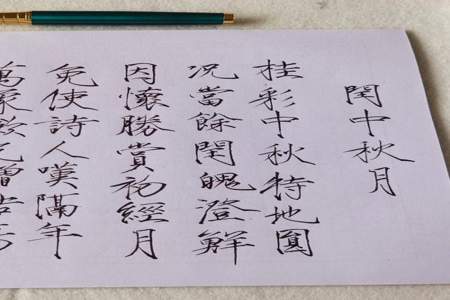 閏中秋月
桂彩中秋特地圓
况當餘閏魄澄鮮
因懷勝賞初經月
免使詩人嘆隔年
萬象